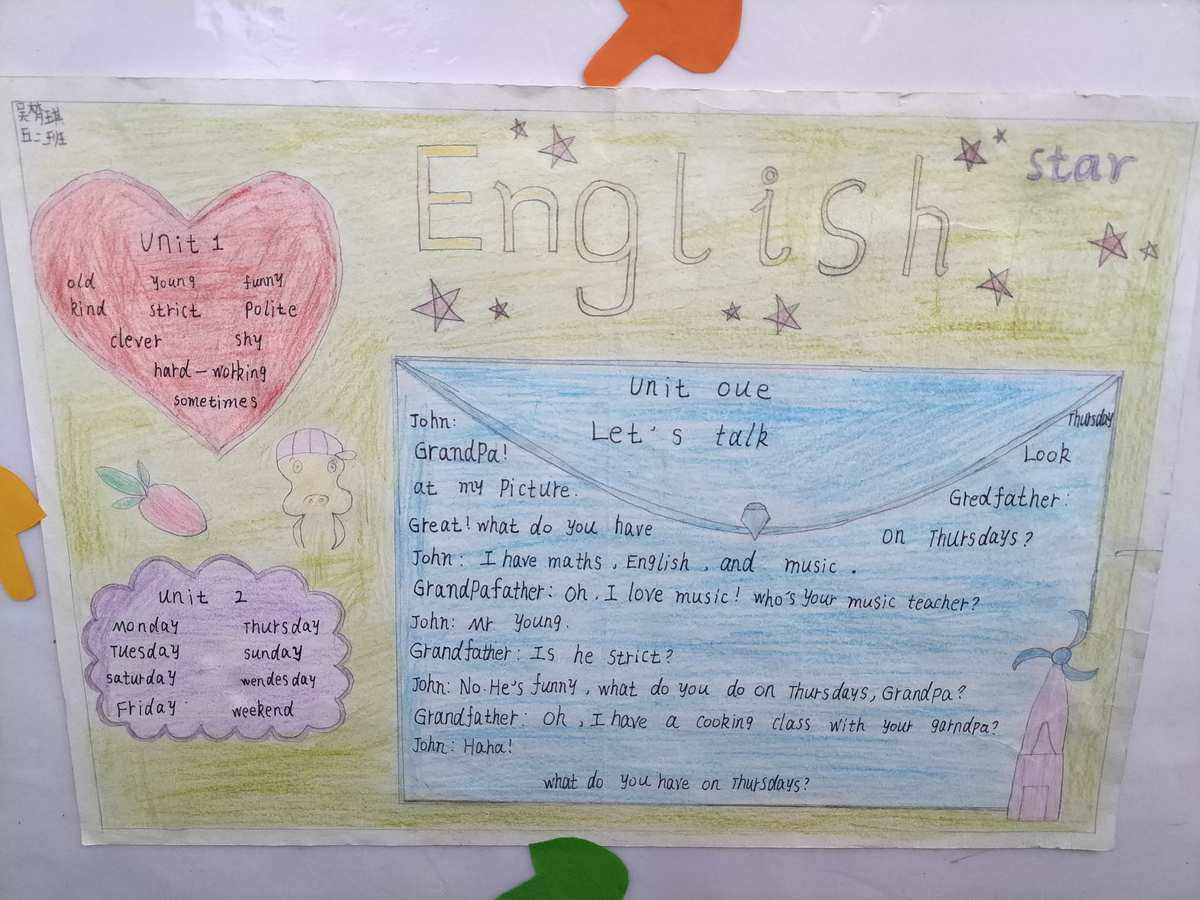 吴梦琪
五二班
English
star
Unit 1
old young funny
kind strict Polite
clever shy
hard-working
sometimes
Unit 2
Monday Thursday
Tuesday sunday
saturday wendesday
Friday weekend
Unit oue
Let's talk
John: Thursday
GrandPa! Look
at my Picture. Gredfather:
Great! what do you have on Thursdays?
John: I have maths, English, and music.
GrandPafather: Oh, I love music! who's your music teacher?
John: Mr Young.
Grandfather: Is he strict?
John: No. He's funny, what do you do on Thursdays, GrandPa?
Grandfather: Oh, I have a cooking class with your garndpa?
John: Haha!
what do you have on Thursdays?